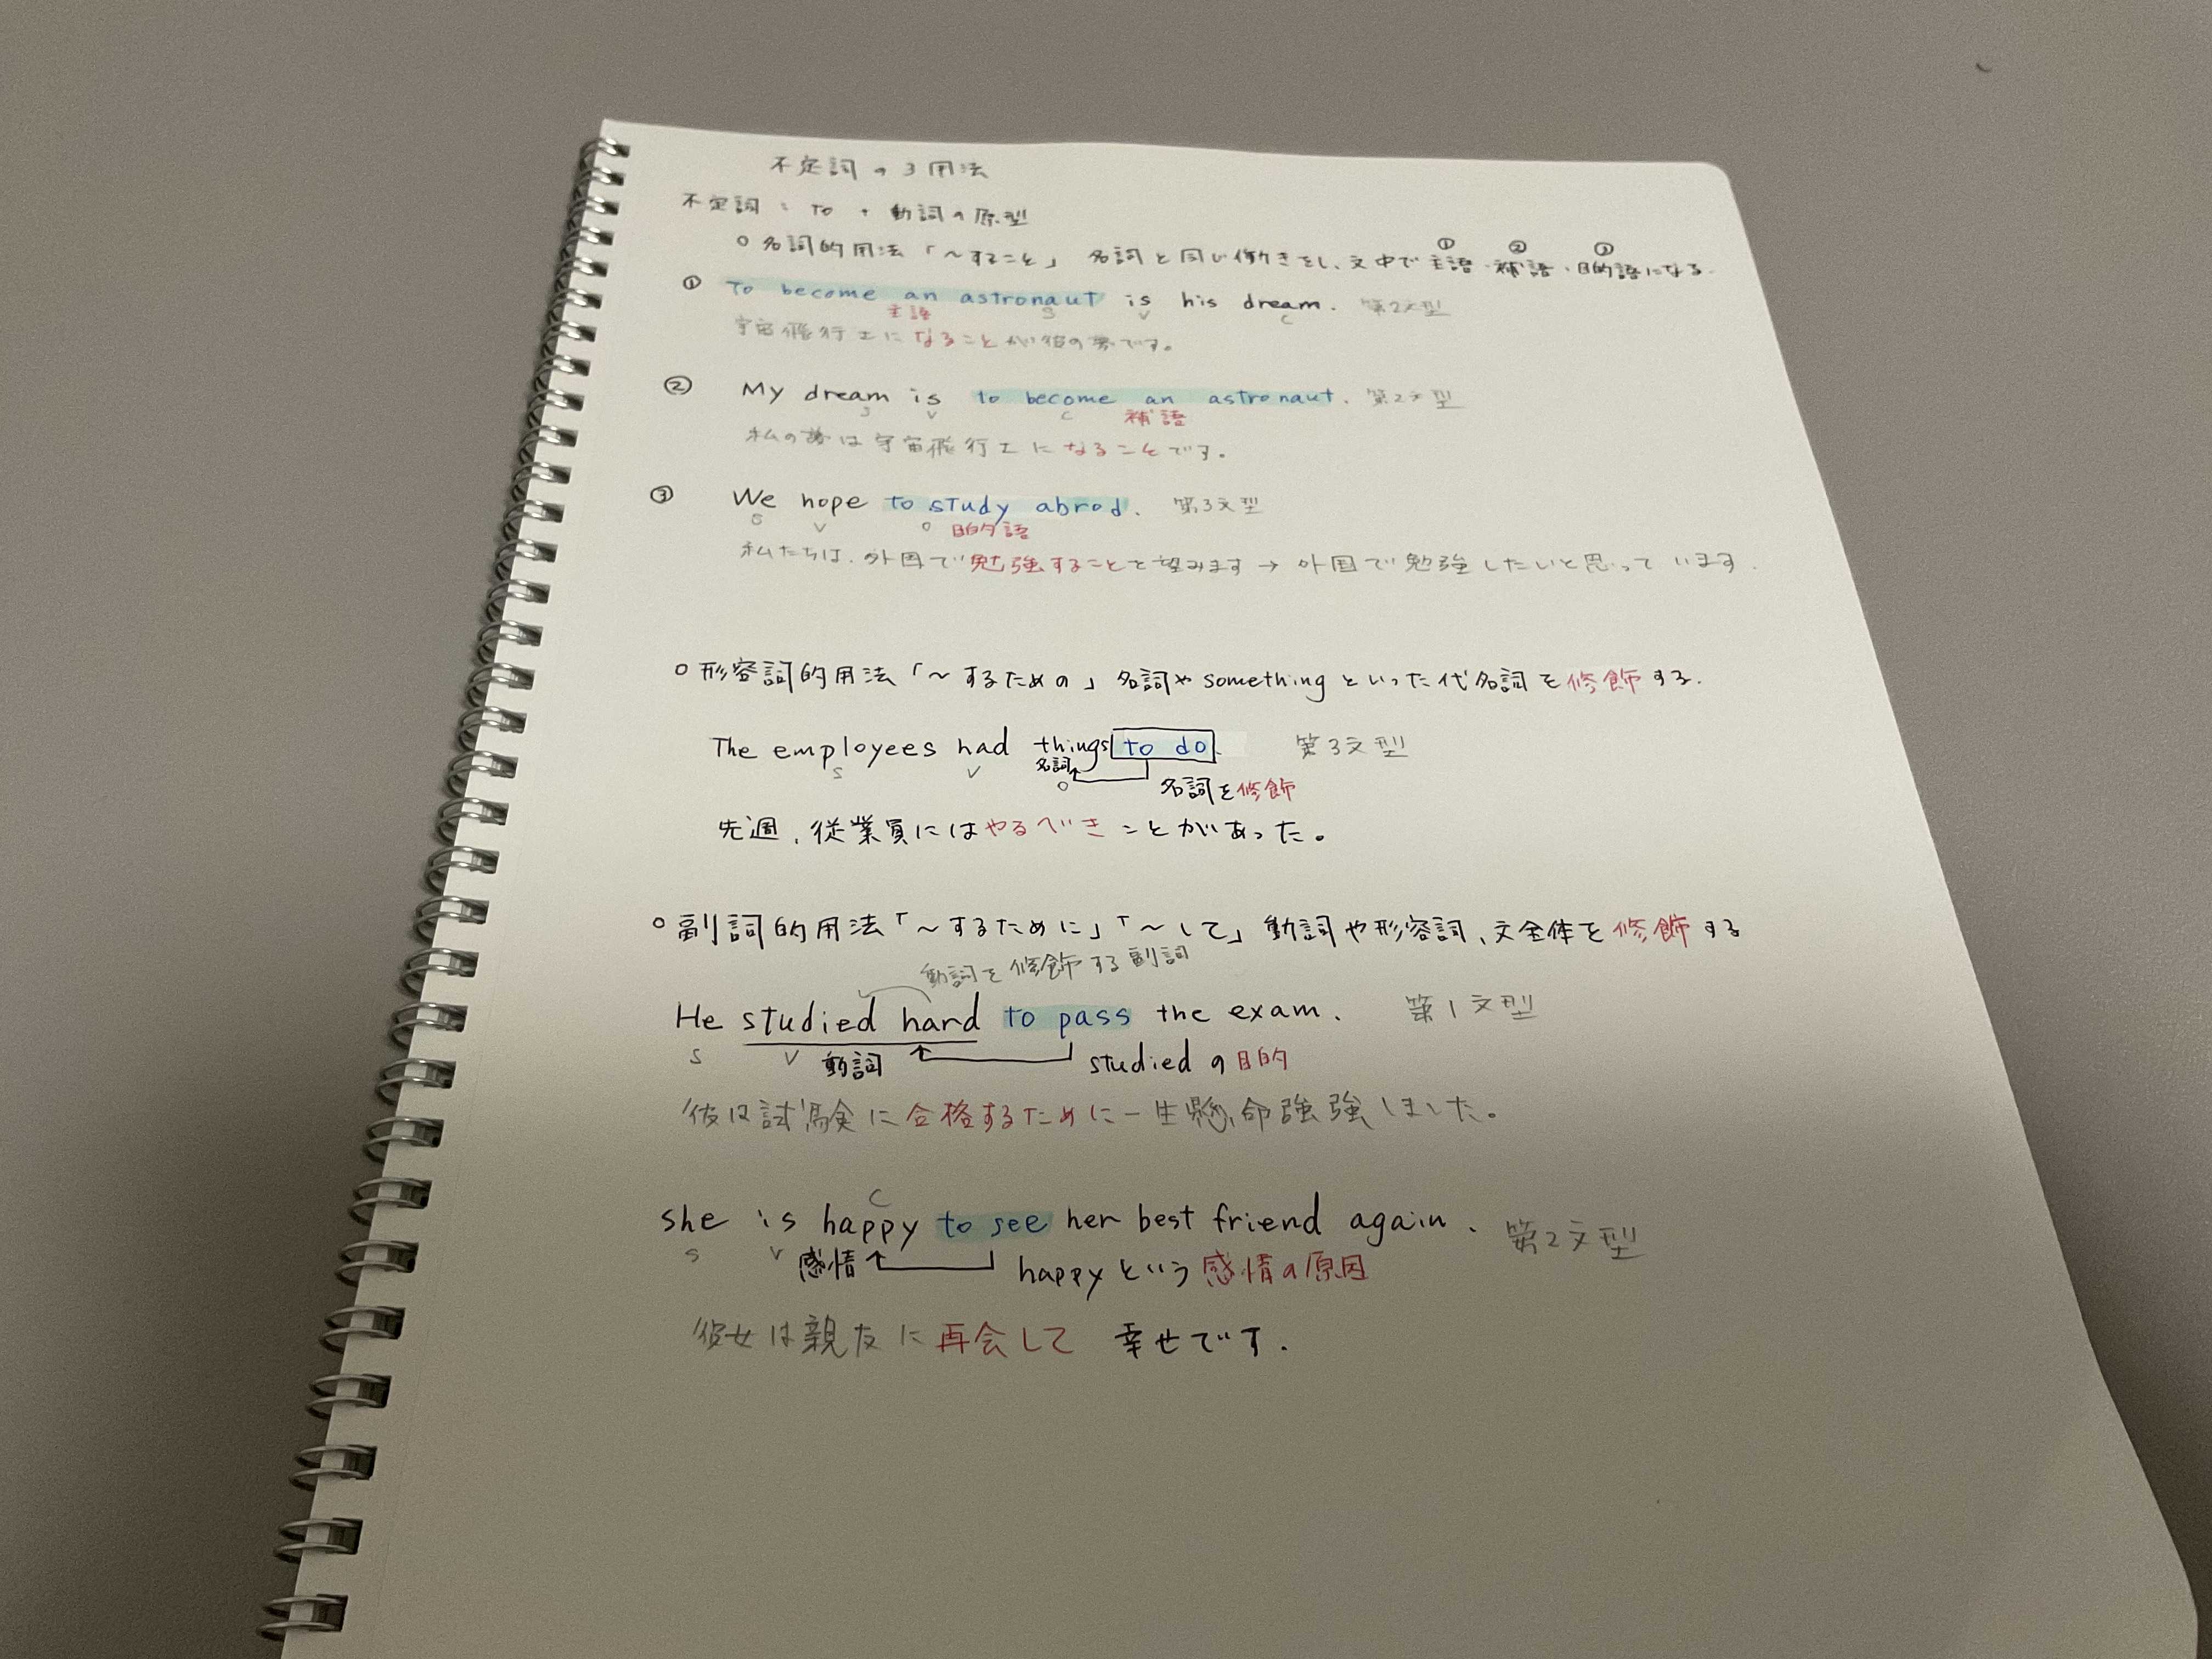 不定詞の3用法
不定詞：to + 動詞の原型
○名詞的用法「～すること」 名詞と同じ働きをし、文中で主語・補語・目的語になる.
① ② ③
① To become an astronaut is his dream. 第2文型
主語 S V C
宇宙飛行士になることが彼の夢です。
② My dream is to become an astronaut. 第2文型
S V C 補語
私の夢は宇宙飛行士になることです。
③ We hope to study abrod. 第3文型
S V O 目的語
私たちは、外国で勉強することを望みます → 外国で勉強したいと思っています.
○形容詞的用法「～するための」名詞やsomethingといった代名詞を修飾する.
The employees had things to do. 第3文型
S V 名詞
O 名詞を修飾
先週、従業員にはやるべきことがあった。
○副詞的用法「～するために」「～して」動詞や形容詞、文全体を修飾する
動詞を修飾する副詞
He studied hard to pass the exam. 第1文型
S V 動詞 studiedの目的
彼は試験に合格するために一生懸命強強しました。
C
she is happy to see her best friend again. 第2文型
S V 感情 happyという感情の原因
彼女は親友に再会して 幸せです.